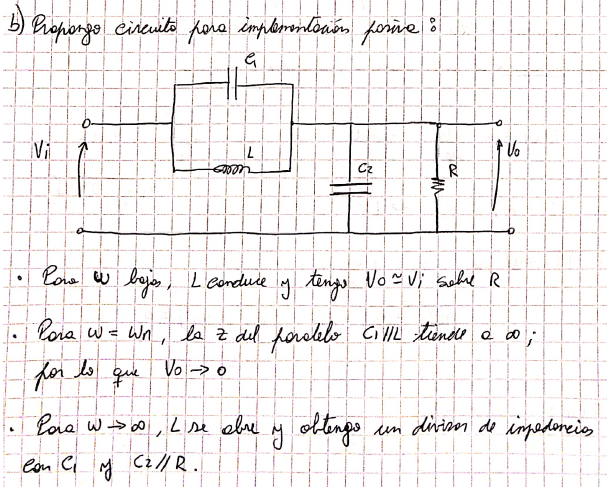 b) Propongo circuito para implementación pasiva :
C1
Vi
L
C2
R
Vo
· Para ω bajos, L conduce y tengo Vo ≃ Vi sobre R
· Para ω = ωn, la z del paralelo C1//L tiende a ∞ ;
por lo que Vo → 0
· Para ω → ∞, L se abre y obtengo un divisor de impedancias
con C1 y C2//R.